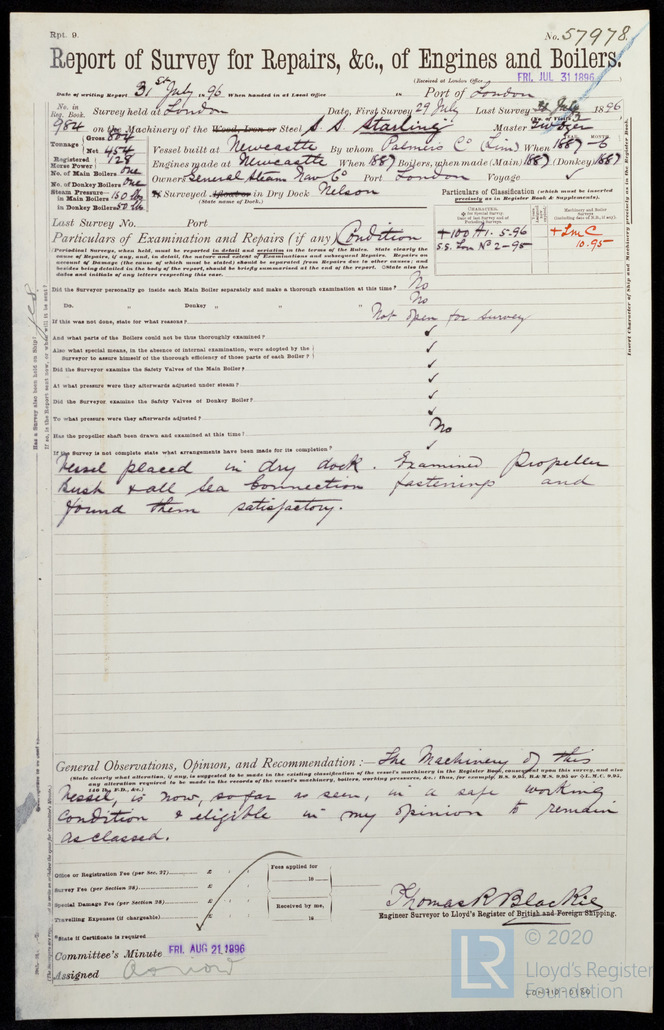 Rpt. 9.
No. 57978.
Report of Survey for Repairs, &c., of Engines and Boilers.
(Received at London Office FRI. JUL 31 1896
Date of writing Report 31st July 1896 When handed in at Local Office in Port of London
No. in Reg. Book. Survey held at London Date, First Survey 29 July Last Survey 30 July 1896
984 on the Machinery of the Wood, Iron or Steel S.S. Starling Master
Tonnage Gross 804
Net 454
Vessel built at Newcastle By whom Palmers Co (Lim) When 1887-6
Registered Horse Power 128
Engines made at Newcastle When 1887 Boilers, when made (Main) 1887 (Donkey) 1887
No. of Main Boilers one
No. of Donkey Boilers one
Owners General Steam Nav Co Port London Voyage
Steam Pressure in Main Boilers 150 lb
in Donkey Boilers 50 lb
If Surveyed Afloat or in Dry Dock Nelson
(State name of Dock.)
Particulars of Classification (which must be inserted precisely as in Register Book & Supplements).
Last Survey No. Port
+100 A1. 5-96
S.S. Lon No 2-95
+LMC
10.95
Particulars of Examination and Repairs (if any) Condition
(Periodical Surveys, when held, must be reported in detail and seriatim in the terms of the Rules. State clearly the
cause of Repairs, if any, and, in detail, the nature and extent of Examinations and subsequent Repairs. Repairs on
account of Damage (the cause of which must be stated) should be separated from Repairs due to other causes; and
besides being detailed in the body of the report, should be briefly summarised at the end of the report. State also the
dates and initials of any letters respecting this case.
Did the Surveyor personally go inside each Main Boiler separately and make a thorough examination at this time? No
Do. " Donkey " " " No
If this was not done, state for what reasons? Not open for survey
And what parts of the Boilers could not be thoroughly examined?
Also what special means, in the absence of internal examination, were adopted by the
Surveyor to assure himself of the thorough efficiency of those parts of each Boiler?
Did the Surveyor examine the Safety Valves of the Main Boiler?
At what pressure were they afterwards adjusted under steam?
Did the Surveyor examine the Safety Valves of Donkey Boiler?
To what pressure were they afterwards adjusted?
Has the propeller shaft been drawn and examined at this time? No
If the Survey is not complete state what arrangements have been made for its completion?
Vessel placed in dry dock. Examined Propeller
Bush & all Sea Connection fastenings and
found them satisfactory.
General Observations, Opinion, and Recommendation:— The Machinery of this
(State clearly what alteration, if any, is suggested to be made in the existing classification of the vessel's machinery in the Register Book, consequent upon this survey, and also
any alteration required to be made in the records of the vessel's machinery, boilers, working pressure, &c.: thus, for example, B.S. 9,95, B.&M.S. 9,95 or L.M.C. 9,95,
140 lb., F.D., &c.)
Vessel, is now, so far as seen, in a safe working
condition & eligible in my opinion to remain
as classed.
Office or Registration Fee (per Sec. 27) £
Survey Fee (per Section 28) £
Special Damage Fee (per Section 28) £
Travelling Expenses (if chargeable) £
Fees applied for
18
Received by me,
18
Thomas R Blackie
Engineer Surveyor to Lloyd's Register of British and Foreign Shipping.
State if Certificate is required
Committee's Minute FRI. AUG 21. 1896
Assigned as now
LR
© 2020
Lloyd's Register
Foundation